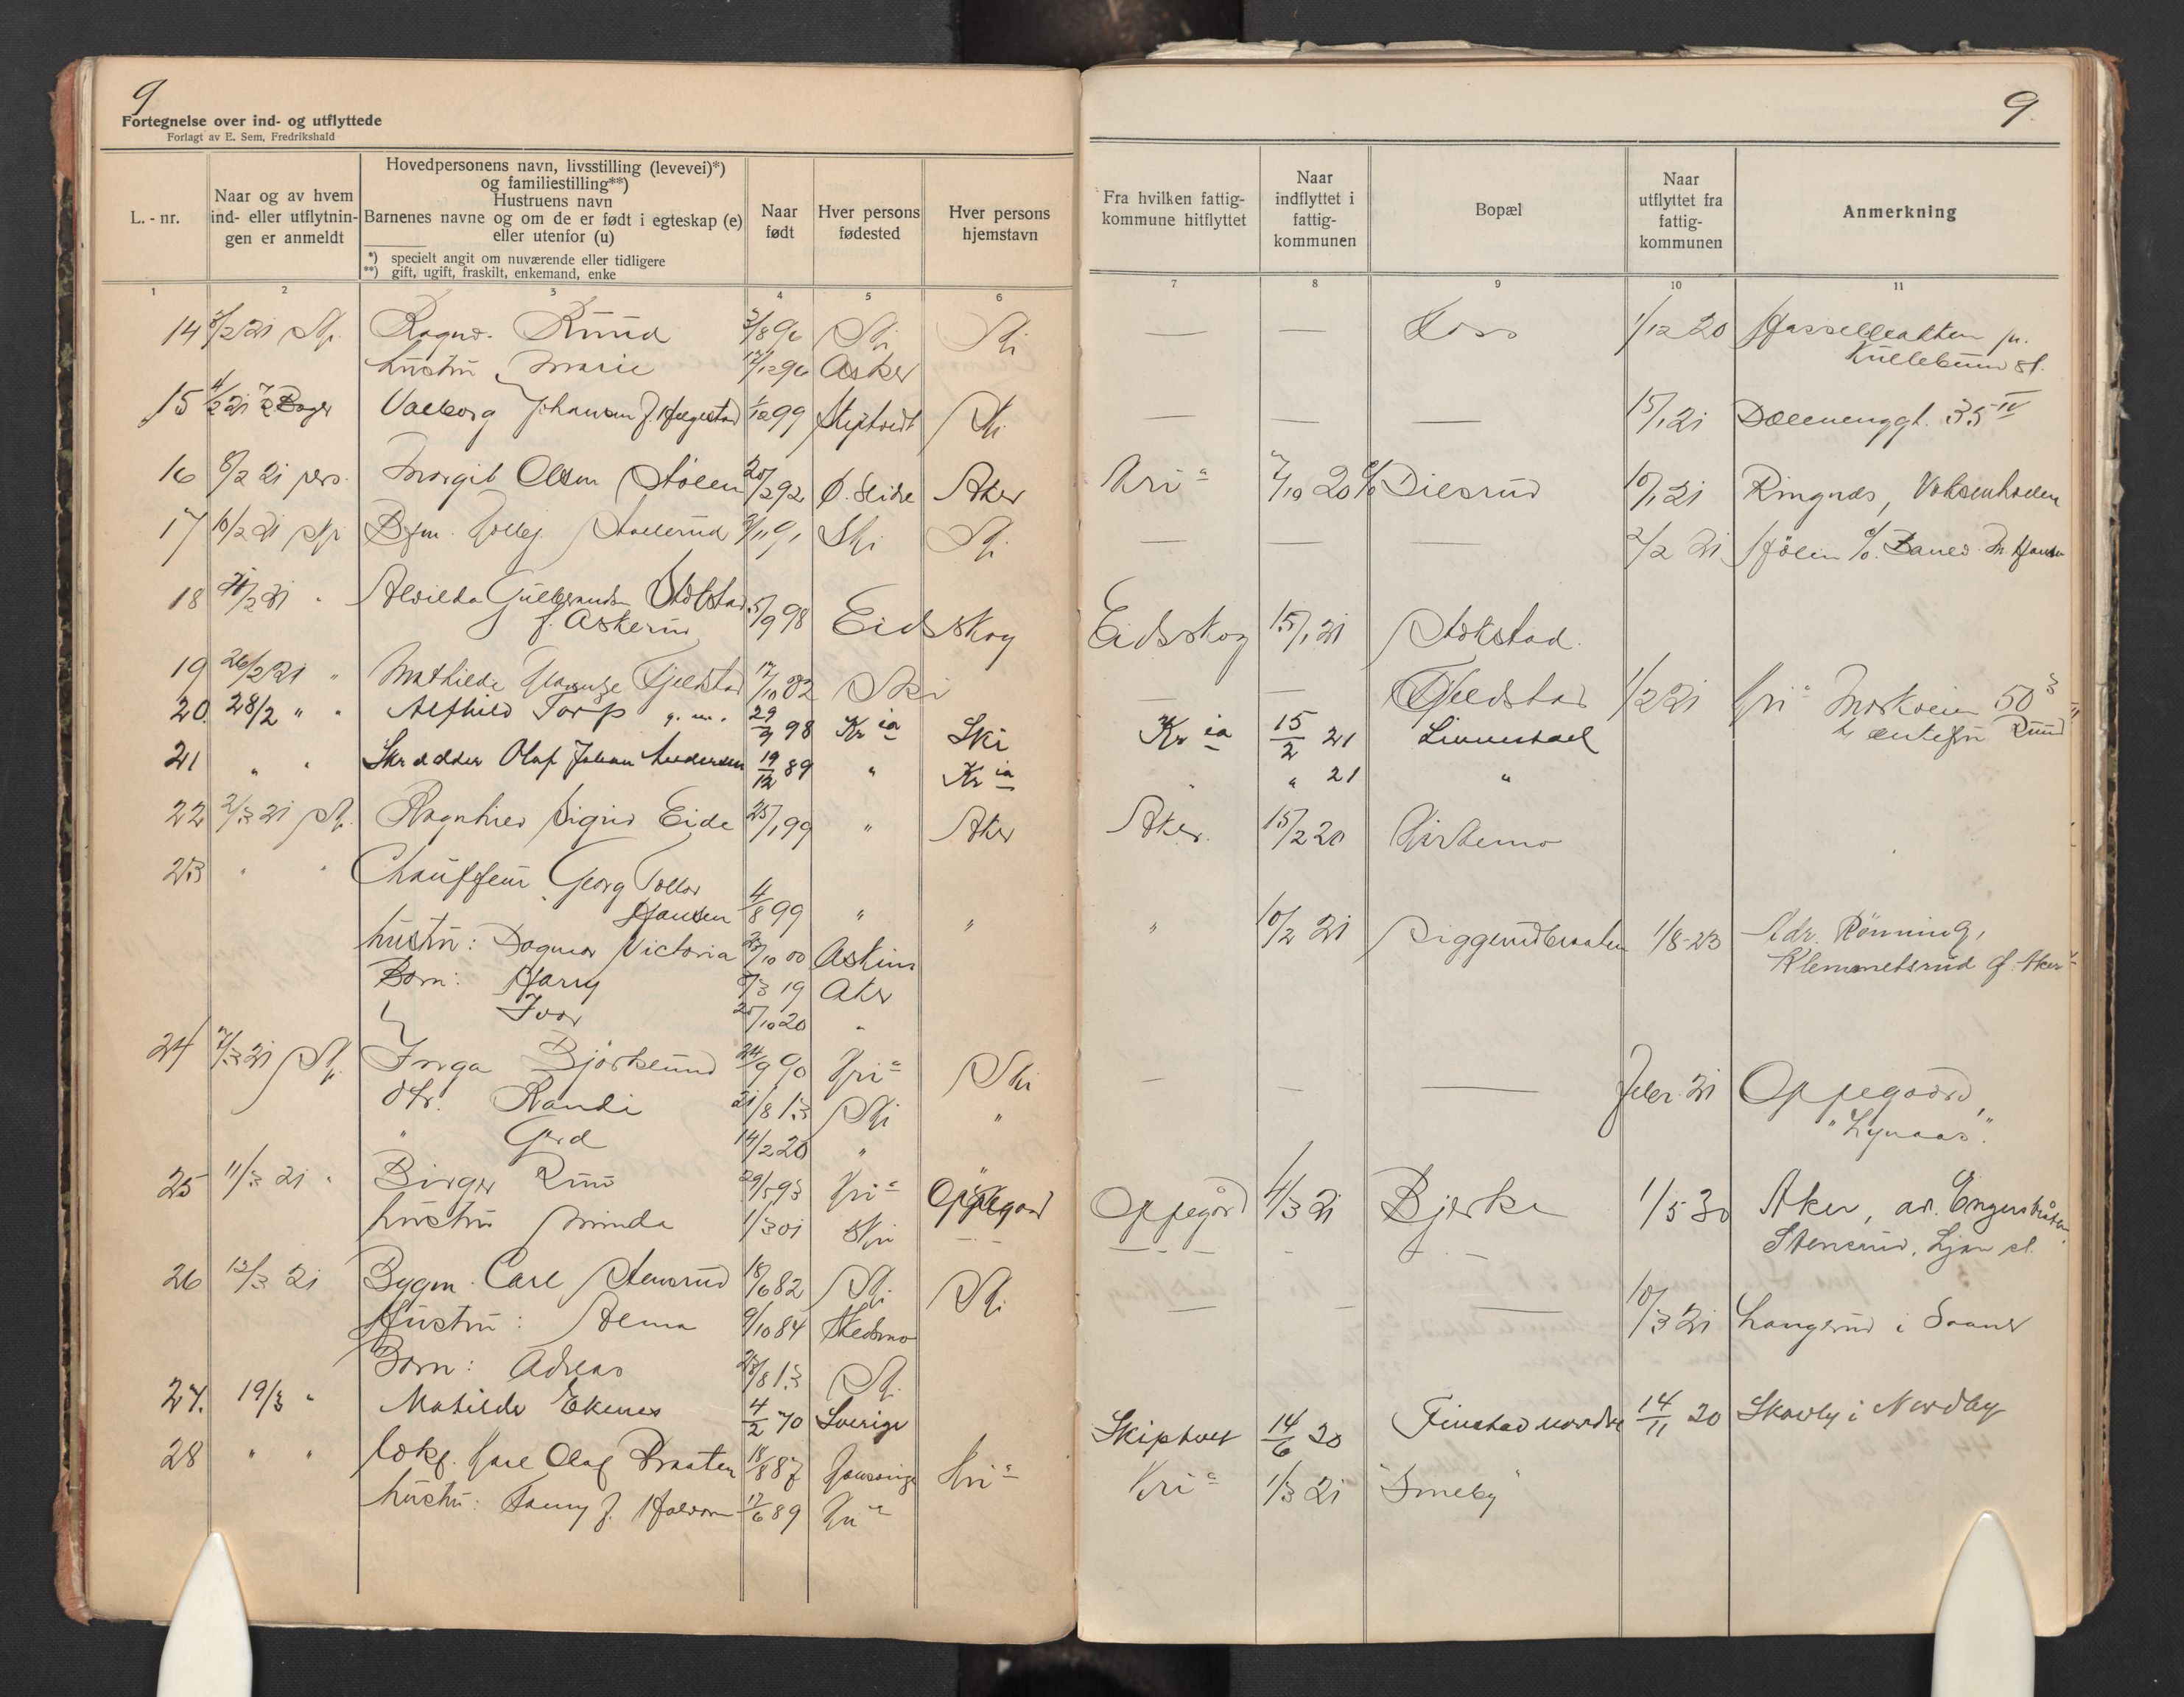 9
Fortegnelse over ind- og utflyttede
Forlagt av E. Sem, Fredrikshald
L.-nr.
Naar og av hvem ind- eller utflytningen er anmeldt
Hovedpersonens navn, livsstilling (levevei)*)
og familiestilling**)
Hustruens navn
Barnenes navne og om de er født i egteskap (e)
eller utenfor (u)
*) specielt angit om nuværende eller tidligere
**) gift, ugift, fraskilt, enkemand, enke
Naar født
Hver persons fødested
Hver persons hjemstavn
9
Fra hvilken fattigkommune hitflyttet
Naar indflyttet i fattigkommunen
Bopæl
Naar utflyttet fra fattigkommunen
Anmerkning
1 2 3 4 5 6 7 8 9 10 11
14 Ragnv. Ruud 3/8 96 Ski Ski — — 1/12 20
hustru Marie 17/12 96 Asker
15 Valborg Johansen f. 1/12 99 Skiptvedt Ski — — — 15/1 21 Dælenenggt. 35 IV
16 8/2 21 pers. Margit Olsen Stølen 20/2 92 Ø. Slidre Aker Kri a 7/10 20 16/1 21 Ringnæs, Voksenkollen
17 16/2 21 Sp 9/11 91 Ski Ski — — — 2/2 21
18 21/2 21 " Alvilda Gulbrandsen Stokstad 5/9 98 Eidskog Eidskog 15/1 21 Stokstad.
f. Askerud
19 26/2 21 " Mathilde Fjeldstad 17/10 82 Ski — — Fjeldstad 1/2 21 Kri a 50 3
20. 28/2 " " Alfhild Torp g. m. 29/9 98 Kr ia Ski Kr ia 15/2 21 Linnestad
21 " " Skrædder Olaf Johan Andersen 19/12 89 " Kr ia " " 21 "
22 2/3 21 Sp. Ragnhild Sigrid Eide 25/1 99 " Aker Aker. 15/2 20 Kirkemo
23 " " Chauffeur Georg
Hansen 4/8 99 " " " 10/2 21 Siggerudbraaten 1/8-23 Adr. Rønning,
hustru: Dagmar Victoria 23/10 00 Askim Klemmetsrud
Børn: Harry 8/3 19 Aker
Ivar 25/10 20 "
24 7/3 21 Sp. Inga Bjørkelund 24/9 90 Kri a Ski — — — Febr. 21 Oppegaard,
dtr. Randi 21/8 13 Ski " "Lynaas".
" Gerd 14/2 20 "
25 11/3 21 " Birger Ruud 29/5 93 Kri a Oppegaard Oppegård 4/3 21 Bjerke 1/5 30 Aker, ad. Engerbråten,
hustru Minda 1/3 01 Ski Stensrud, Ljan st.
26 13/3 21 Bygm. Carl Stensrud 18/6 82 Ski Ski — — — 10/3 21 Langerud i Saaner
Hustru: Alma 9/10 84 Skedsmo
Børn: Adreas 23/8 13 Ski
27. 19/3 " Matilde Ekenes 4/2 70 Sverige Skiptvet 14/6 20 Finstad nordre 14/11 20 Skovly i Nordby
28 " " Karl Olaf Braaten 18/8 87 Kri a Kri a 1/3 21 "Smeby"
hustru: Fanny f. Halvorsen 17/6 89 Kri a